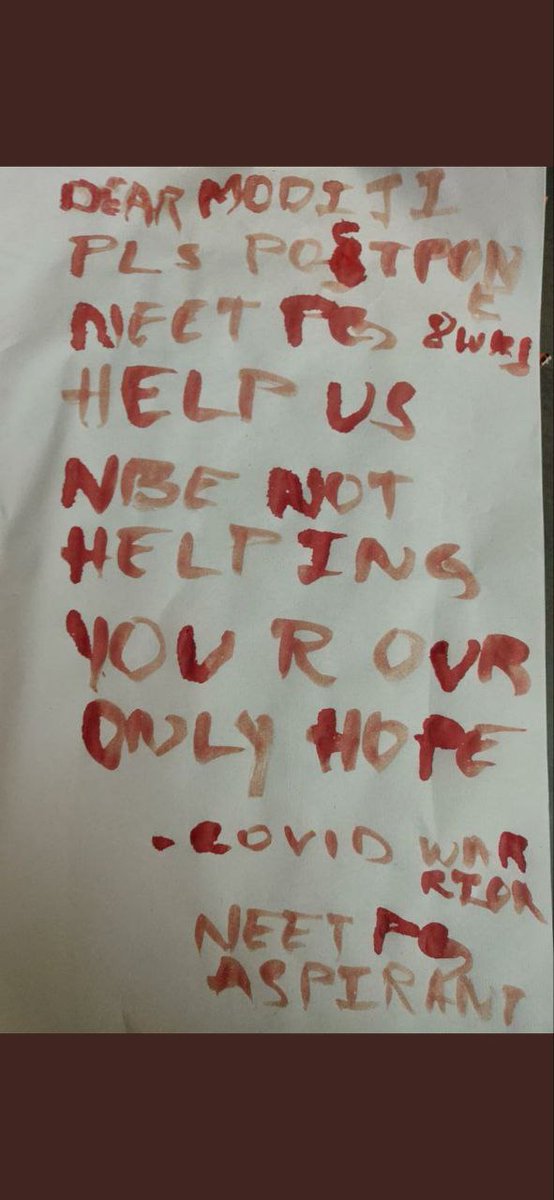 DEAR MODI JI
PLS POSTPONE
NEET PG 8 WKS
HELP US
NBE NOT
HELPING
YOU R OUR
ONLY HOPE
- COVID WARRIOR
NEET PG
ASPIRANT